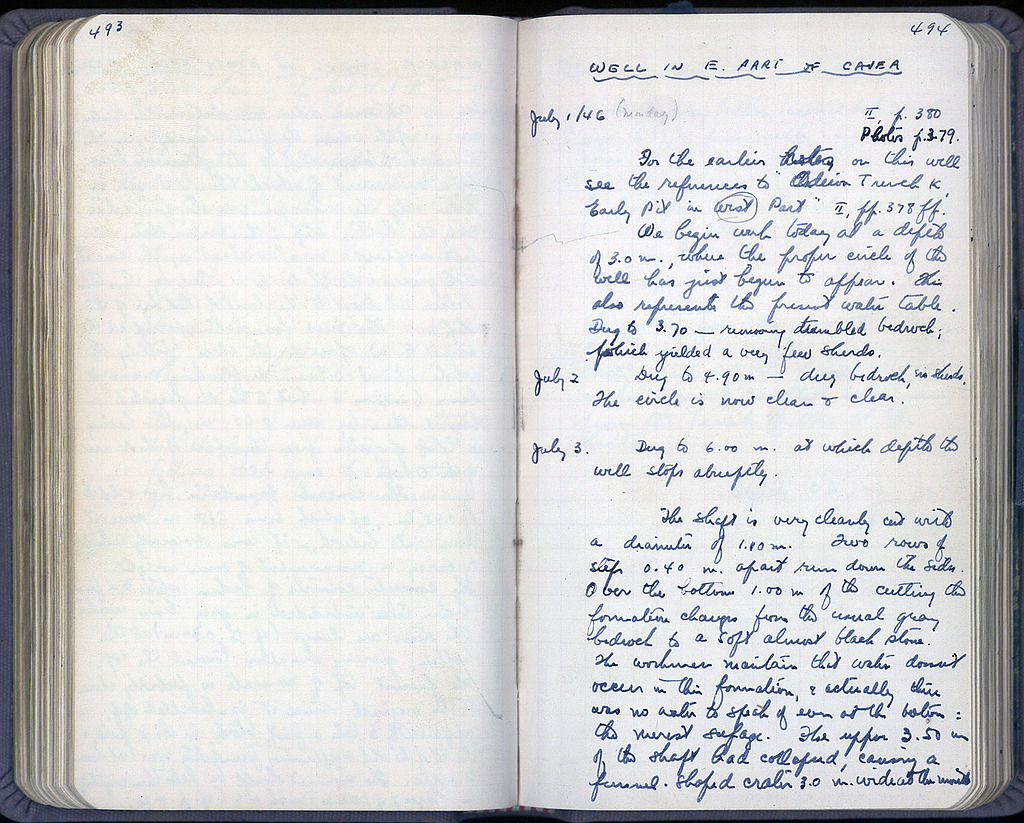 493
494
WELL IN E. PART OF CAVEA
July 1/46 (Monday)
II, p. 380
Photos p. 379.
For the earlier on this well
see the references to " Trench K,
Early Pit in West Part" II, pp. 378 ff.
We begin work today at a depth
of 3.0 m., where the proper circle of the
well has just begun to appear. This
also represents the present water table.
Dug to 3.70 — removing bedrock,
which yielded a very few sherds.
July 2 Dug to 4.90 m — dug bedrock, no sherds.
The circle is now clean & clear.
July 3. Dug to 6.00 m. at which depth the
well stops abruptly.
The shaft is very cleanly cut with
a diameter of 1.10 m. Two rows of
steps 0.40 m. apart run down the sides.
Over the bottom 1.00 m of the cutting the
formation changes from the usual gray
bedrock to a soft almost black stone.
The workmen maintain that water doesn't
occur in this formation, & actually there
was no water to speak of even at the bottom:
the merest seepage. The upper 3.50 m
of the shaft had collapsed, causing a
funnel-shaped crater 3.0 m. wide at the mouth